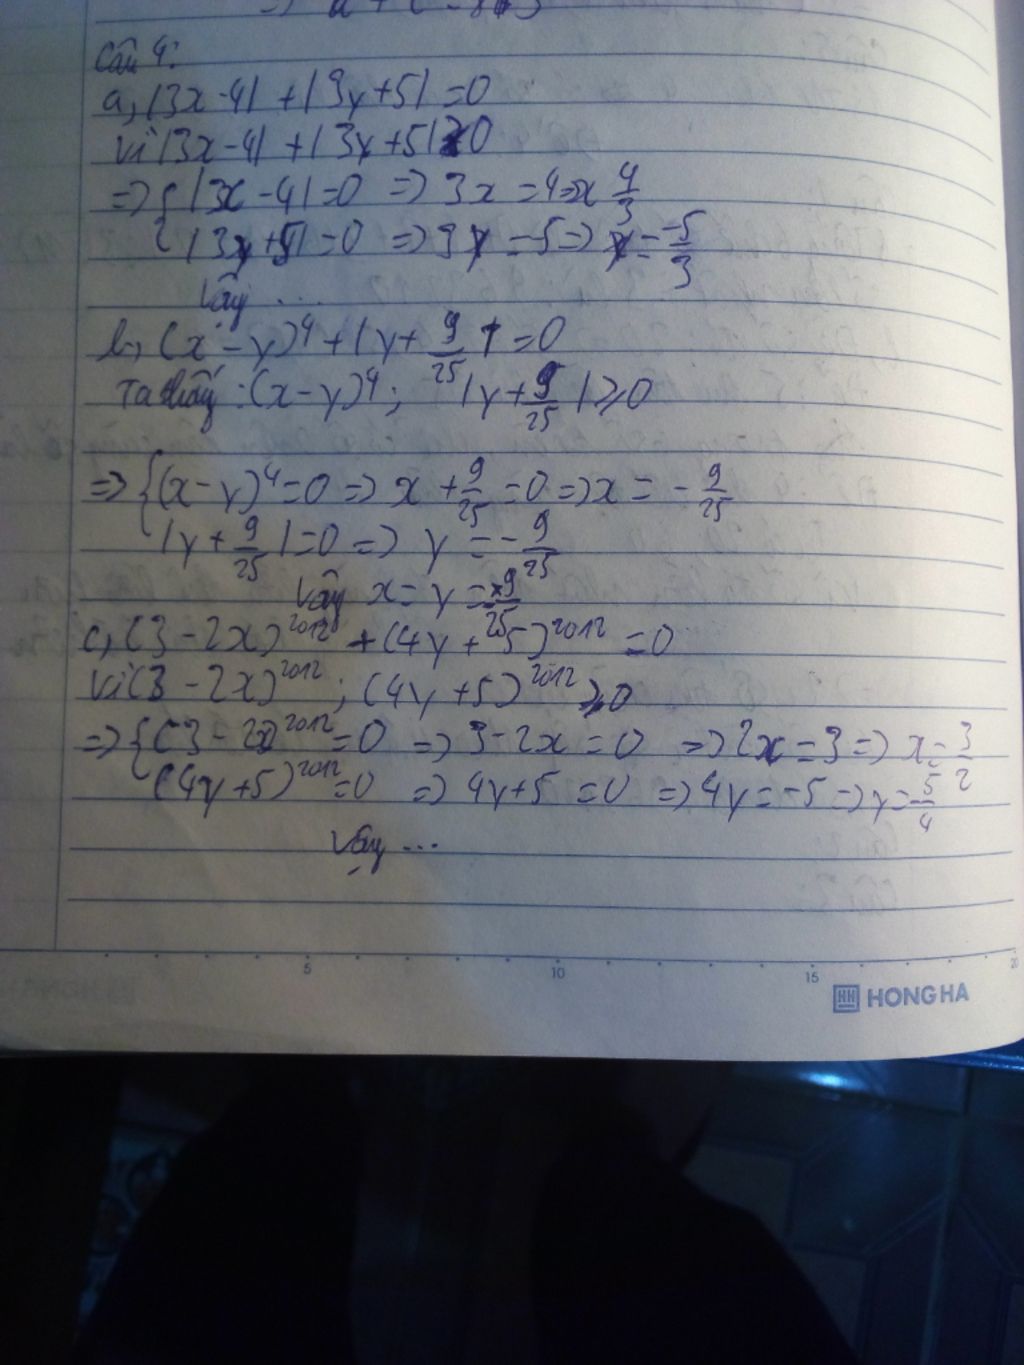 Câu 4:
a, |3x - 4| + |3y + 5| = 0
Vì |3x - 4| + |3y + 5| ≥ 0
=> { |3x - 4| = 0 => 3x = 4 => x 4/3
|3y + 5| = 0 => 3y = -5 => y = -5/3
Vậy ....
b, (x - y)^4 + |y + 9/25| = 0
Ta thấy : (x - y)^4 ; |y + 9/25| ≥ 0
=> { (x - y)^4 = 0 => x + 9/25 = 0 => x = - 9/25
|y + 9/25| = 0 => y = - 9/25
Vậy x = y = -9/25
c, (3 - 2x)^2012 + (4y + 5)^2012 = 0
Vì (3 - 2x)^2012 ; (4y + 5)^2012 ≥ 0
=> { (3 - 2x)^2012 = 0 => 3 - 2x = 0 => 2x = 3 => x = 3/2
(4y + 5)^2012 = 0 => 4y + 5 = 0 => 4y = -5 => y = -5/4
Vậy ...
5 10 15 20
HH HONG HA